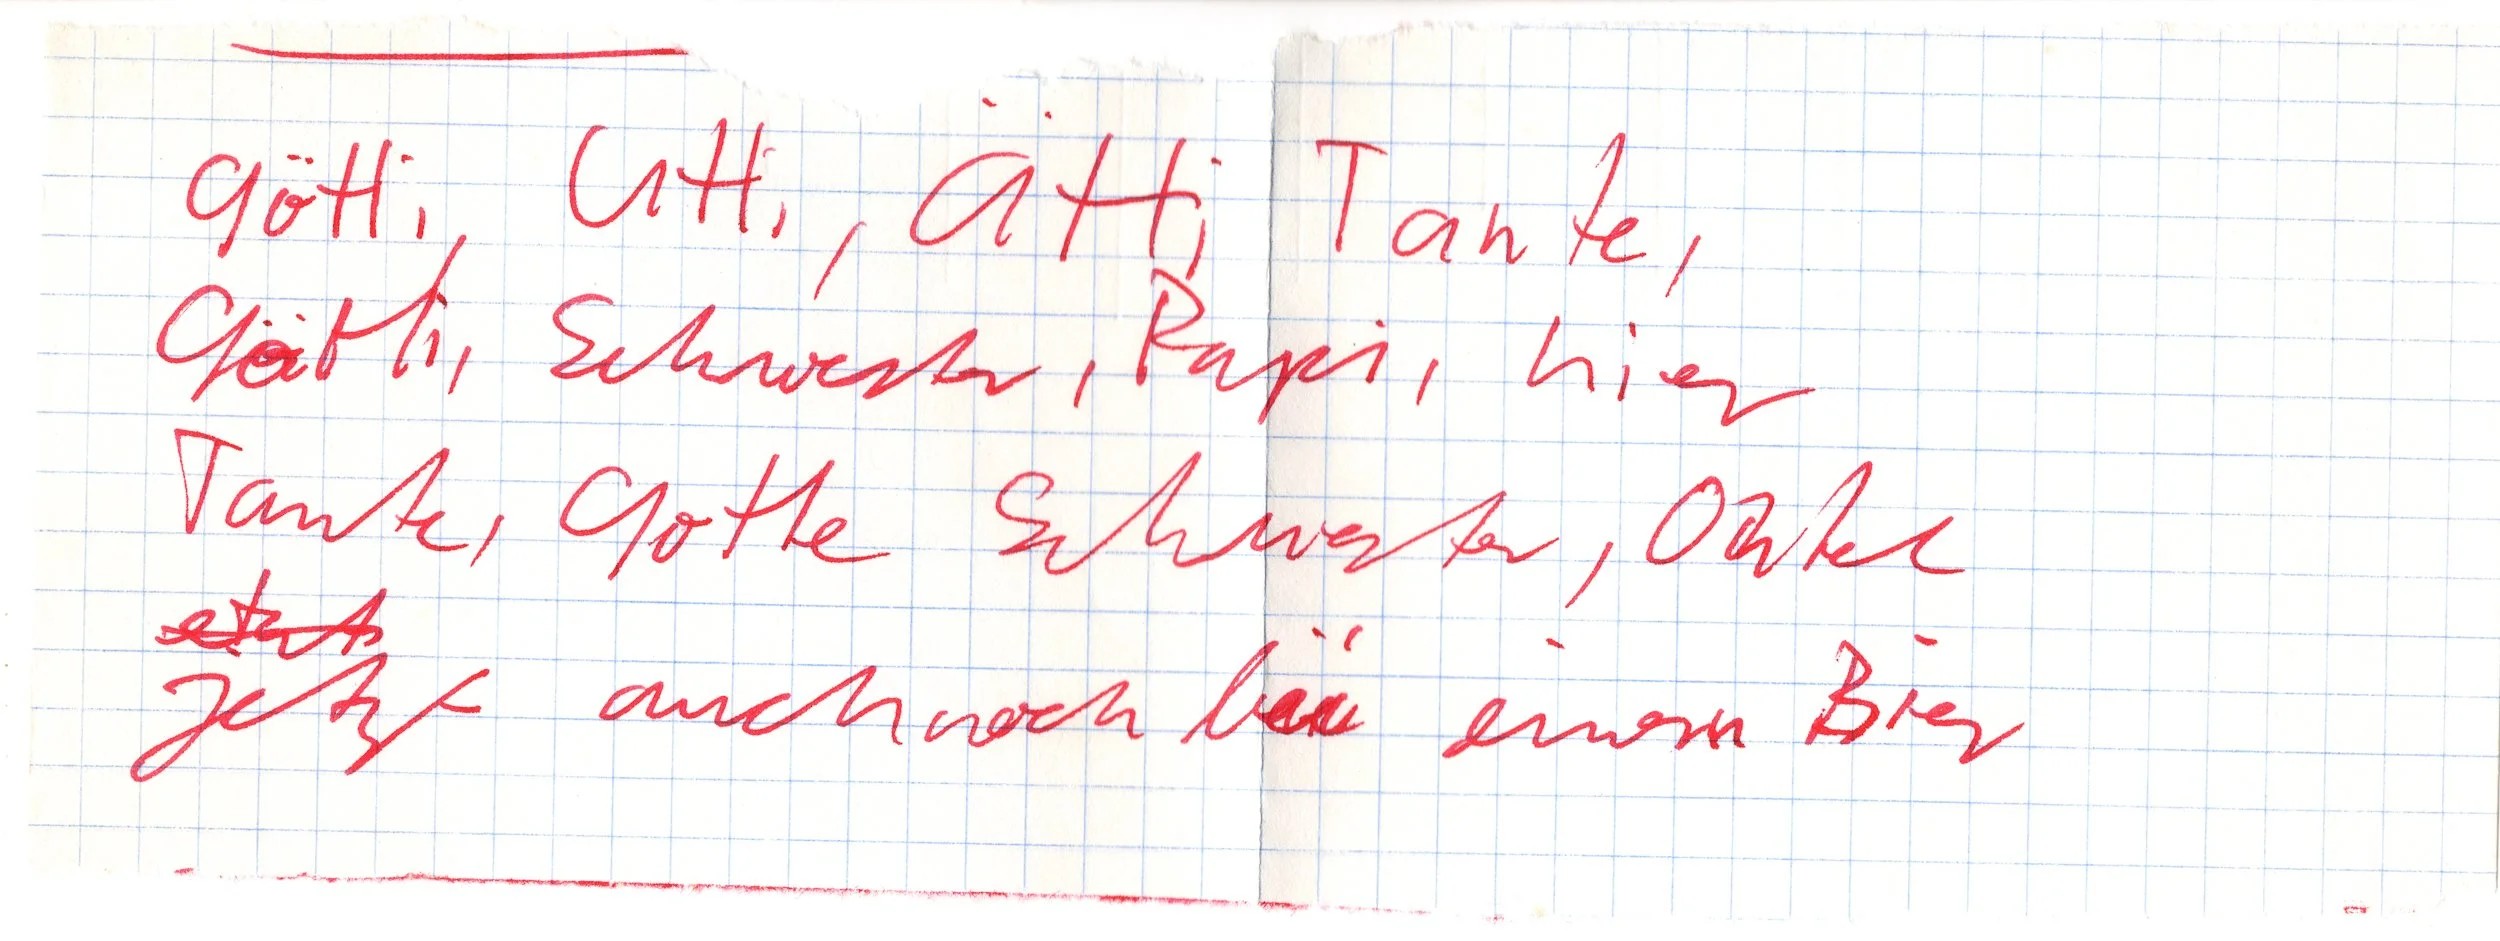 Götti, Utti, Ätti, Tante,
Götti, Schwester, Rapi, hier
Tante, Gotte Schwester, Onkel
Jetzt auch noch bei einem Bier